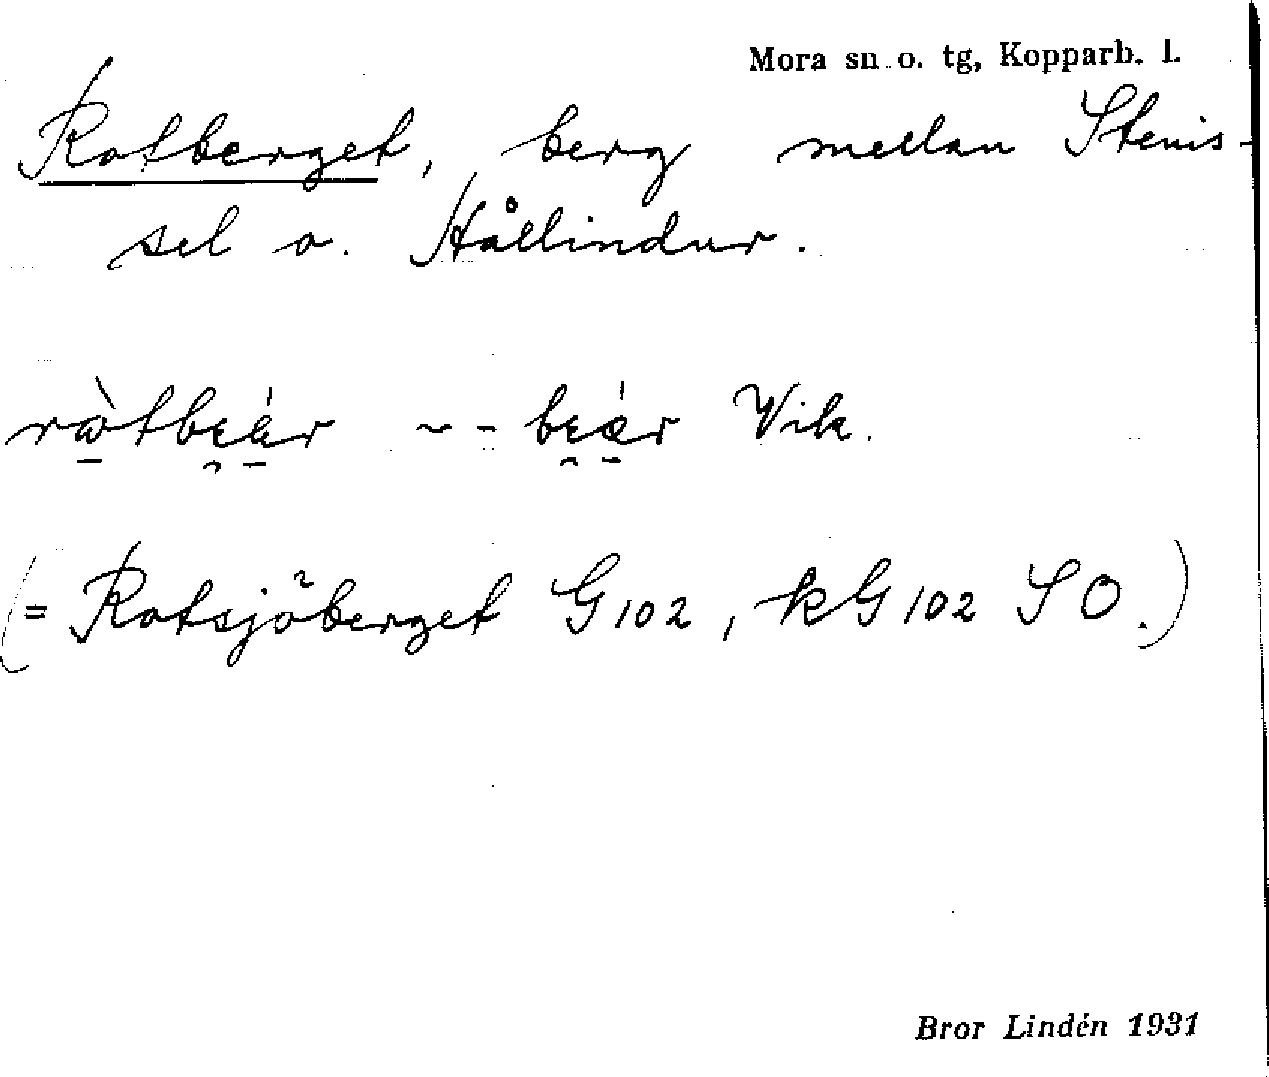 Mora sn o. tg, Kopparb. l.
Rotberget, berg mellan Stenis-
sel o. Hållindur.
Vik.
(= Rotsjöberget G102, kG102 SO.)
Bror Lindén 1931